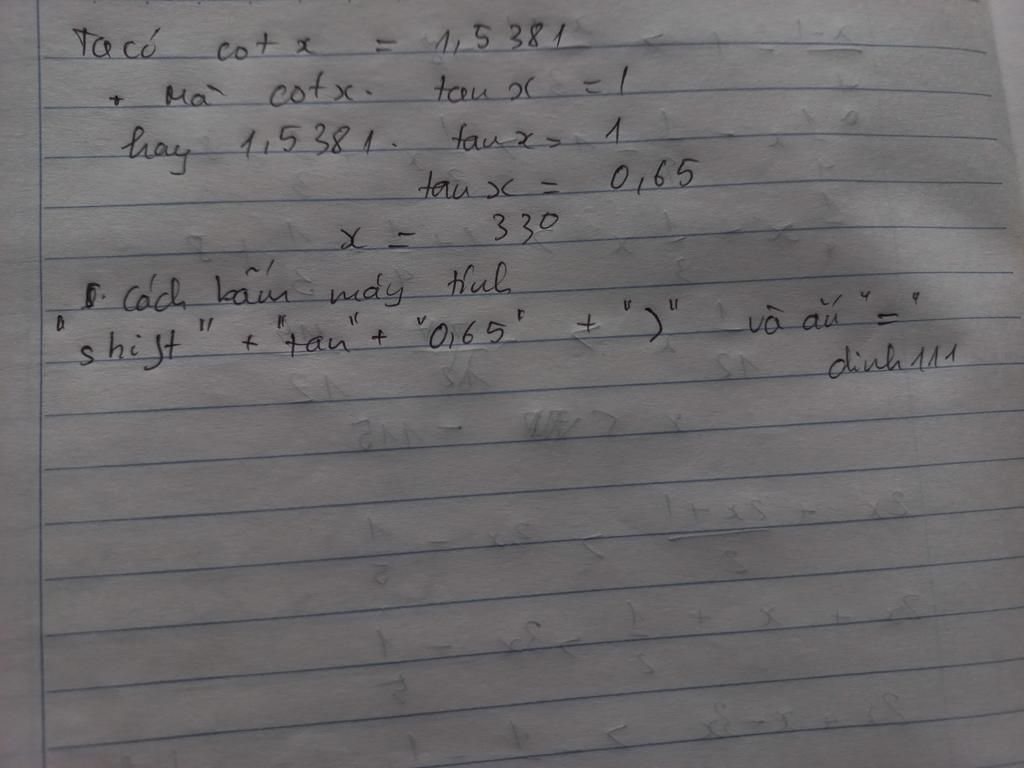 Ta có cotx = 1,5381
+ Mà cotx. tanx = 1
hay 1,5381. tanx = 1
tanx = 0,65
x = 330
. cách bấm máy tính
"shift" + "tan" + "0,65" + ")" và ấn "="
dinh111